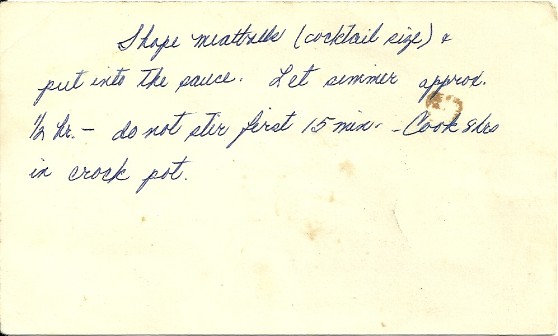 Shape meatballs (cocktail size) &
put into the sauce. Let simmer approx.
1/2 hr. - do not stir first 15 min. - Cook 8 hrs
in crock pot.